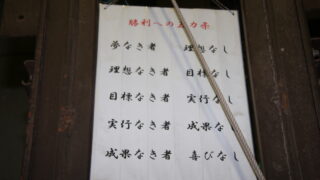 勝利への五カ条
夢なき者 理想なし
理想なき者 目標なし
目標なき者 実行なし
実行なき者 成果なし
成果なき者 喜びなし